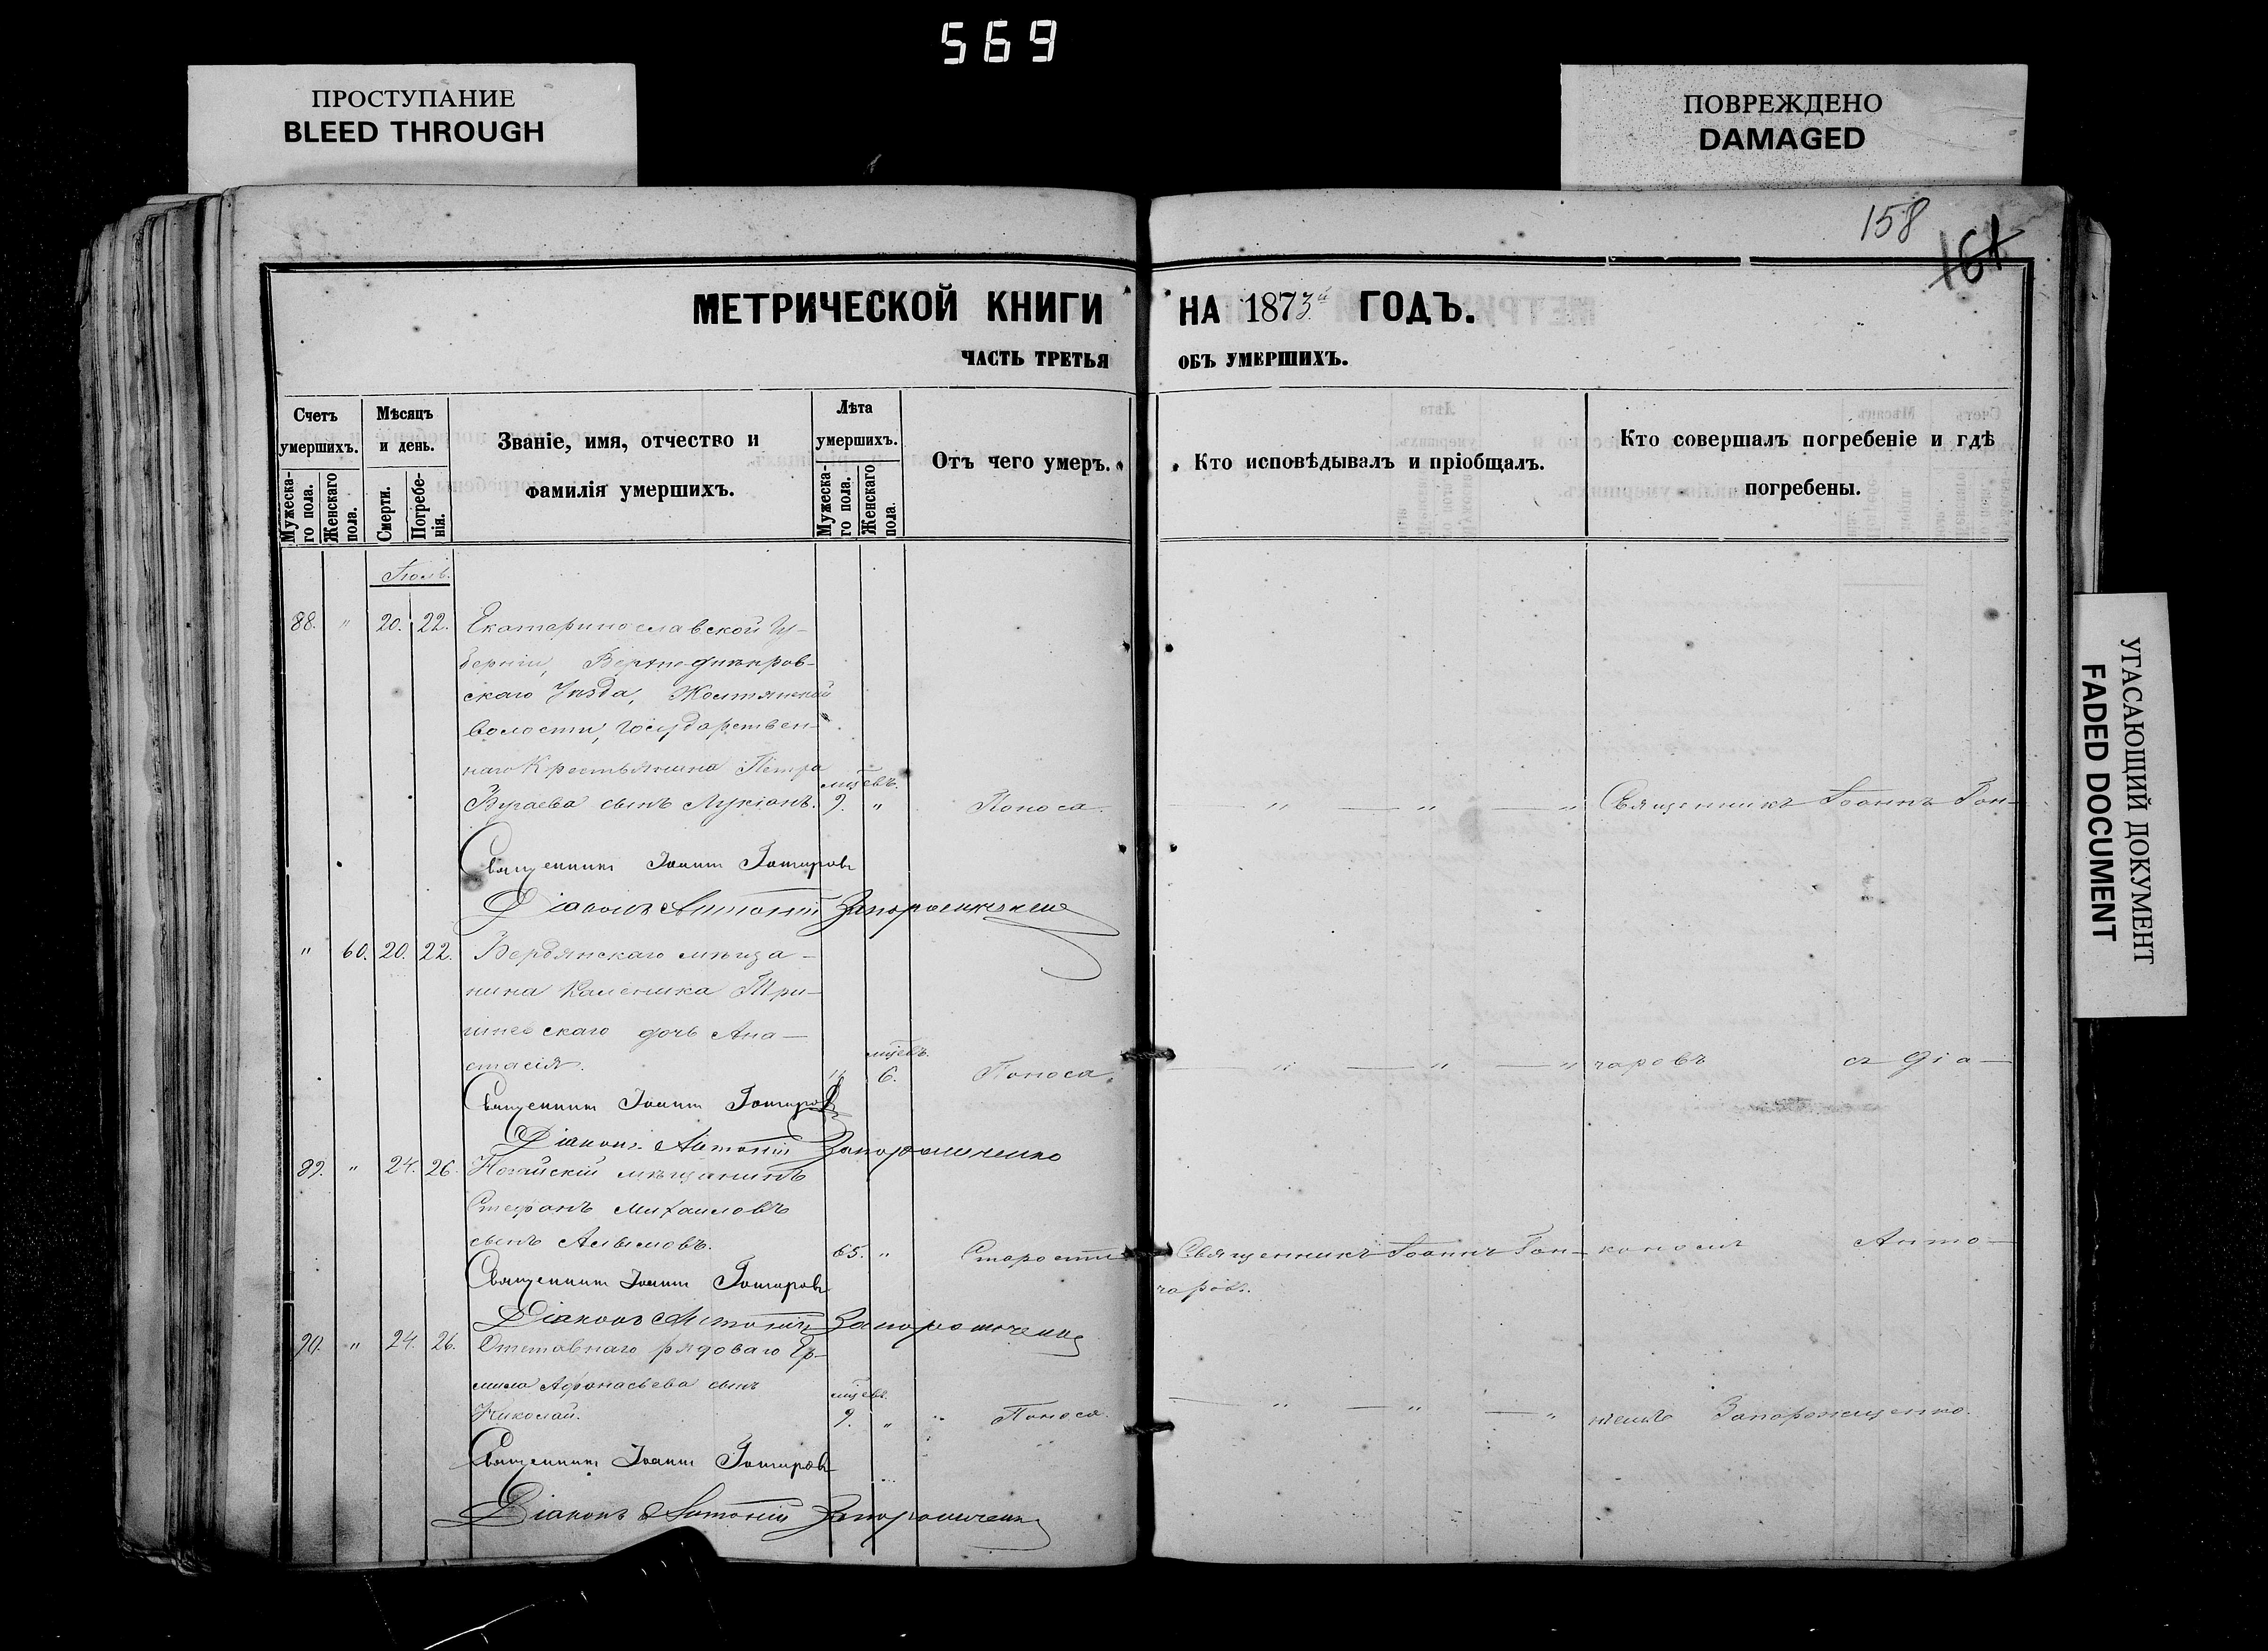 569
ПРОСТУПАНИЕ
BLEED THROUGH
ПОВРЕЖДЕНО
DAMAGED
УГАСАЮЩИЙ ДОКУМЕНТ
FADED DOCUMENT
158
161
МЕТРИЧЕСКОЙ КНИГИ НА 1873й ГОДЪ.
ЧАСТЬ ТРЕТЬЯ ОБЪ УМЕРШИХЪ.
Счетъ умершихъ.
Мужескаго пола.
Женскаго пола.
Мѣсяцъ и день.
Смерти.
Погребенія.
Званіе, имя, отчество и
фамилія умершихъ.
Лѣта умершихъ.
Мужескаго пола.
Женскаго пола.
Отъ чего умеръ.
Кто исповѣдывалъ и пріобщалъ.
Кто совершалъ погребеніе и гдѣ
погребены.
Іюль.
88. " 20. 22. Екатеринославской Гу-
берніи, Верхнеднѣпров-
скаго Уѣзда,
волости, Государствен-
наго Крестьянина Петра
сынъ Лукіанъ. мцевъ. 9. " Поноса. " " " Священникъ Іоаннъ Гон-
Священникъ Іоаннъ Гончаровъ
Діаконъ Антоній Запорожченко
" 60. 20. 22. Бердянскаго мѣща-
нина Каленика Три-
скаго дочь Ана-
стасія. " мцевъ. 6. Поноса. " " " чаровъ съ діа-
Священникъ Іоаннъ Гончаровъ
Діаконъ Антоній Запорожченко
89. " 24. 26. Ногайскій мѣщанинъ
Стефанъ Михаиловъ
сынъ 65. " Старости Священникъ Іоаннъ Гон- кономъ Анто-
чаровъ.
Священникъ Іоаннъ Гончаровъ
Діаконъ Антоній Запорожченко
90. " 24. 26. Отставнаго рядоваго Ер-
мила Афанасьева сынъ
Николай. мцевъ. 9. " Поноса. " " " ніемъ Запорожченко.
Священникъ Іоаннъ Гончаровъ
Діаконъ Антоній Запорожченко